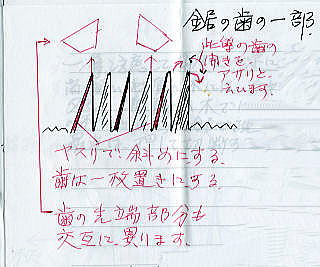 鋸の歯の一部.
此等の歯の
開きを
アサリと
云います.
ヤスリで斜めにする.
歯は一枚置きにする.
歯の先端部分も
交互に異ります.